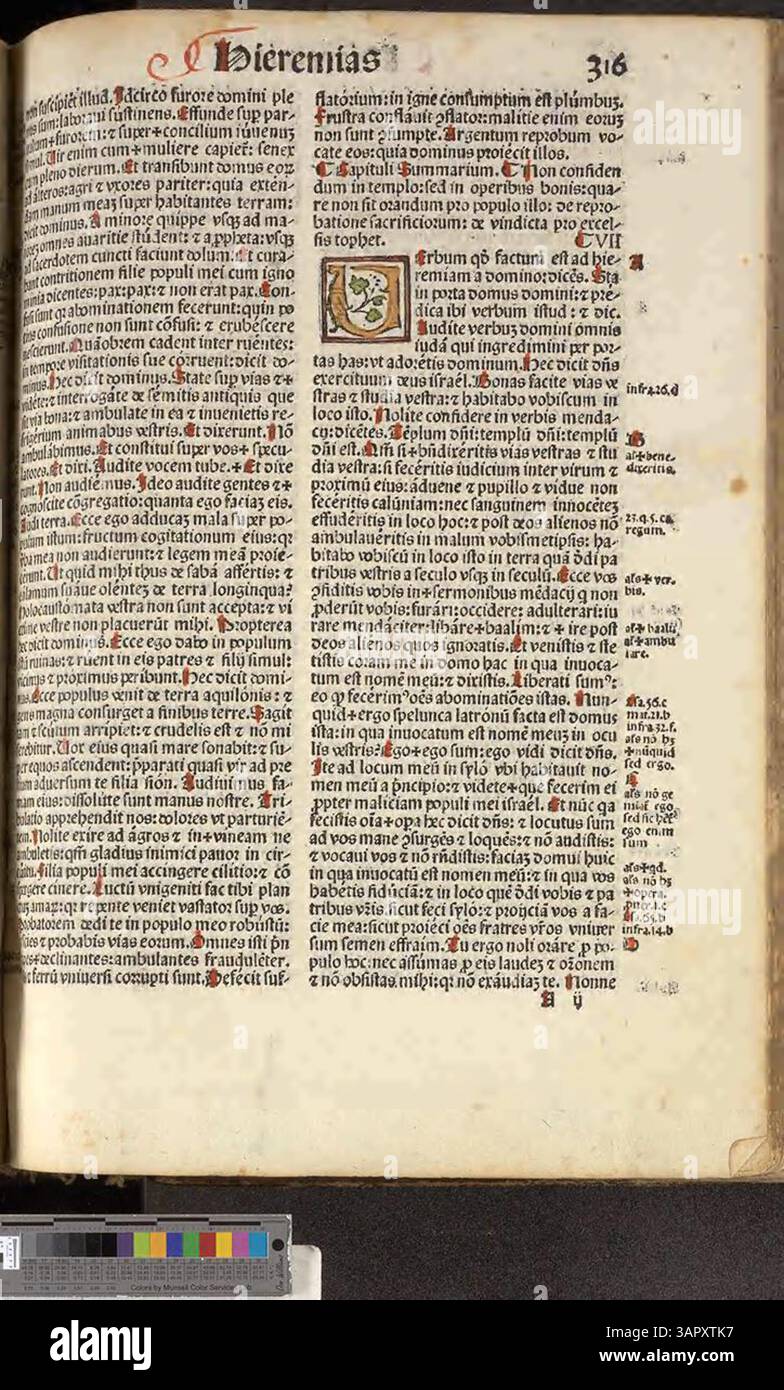 Hieremias
316
non suscipiet illud. Idcirco furore domini ple
sum: laboraui sustinens. Effunde sup par-
furorem: ⁊ super + concilium iuuenuʒ
Uir enim cum + muliere capiet: senex
cum pleno dierum. Et transibunt domus eoꝝ
ad alteros: agri ⁊ vxores pariter: quia exten-
dam manum meaʒ super habitantes terram:
dicit dominus. A minore quippe vsqʒ ad ma-
omnes auaritie student: ⁊ a ꝓpheta: vsqʒ
ad sacerdotem cuncti faciunt dolum. Et cura-
bant contritionem filie populi mei cum igno
minia dicentes: pax: pax: ⁊ non erat pax. Con-
fusi sunt qꝛ abominationem fecerunt: quin po
confusione non sunt cōfusi: ⁊ erubescere
nescierunt. Quāobrem cadent inter ruentes:
in tempore visitationis sue corruent: dicit do-
minus. Hec dicit dominus. State sup vias ⁊ +
videte: ⁊ interrogate de semitis antiquis que
sit via bona: ⁊ ambulate in ea ⁊ inuenietis re-
frigerium animabus vestris. Et dixerunt. Nō
ambulabimus. Et constitui super vos + specu-
latores. Et dixi. Audite vocem tube. + Et dixe
runt. Non audiemus. Ideo audite gentes ⁊ +
cognoscite cōgregatio: quanta ego faciaʒ eis.
Audi terra. Ecce ego adducaʒ mala super po-
pulum istum: fructum cogitationum eius: qꝛ
verba mea non audierunt: ⁊ legem meā proie-
cerunt. Ut quid mihi thus de saba affertis: ⁊
calamum suaue olenteʒ de terra longinqua?
Holocaustomata vestra non sunt accepta: ⁊ vi
ctime vestre non placuerūt mihi. Propterea
hec dicit dominus. Ecce ego dabo in populum
istū ruinas: ⁊ ruent in eis patres ⁊ filij simul:
vicinus ⁊ proximus peribunt. Hec dicit domi-
nus. Ecce populus venit de terra aquilonis: ⁊
gens magna consurget a finibus terre. Sagit
tam ⁊ scutum arripiet: ⁊ crudelis est ⁊ nō mi
serebitur. Uox eius quasi mare sonabit: ⁊ su-
per equos ascendent: pparati quasi vir ad pre
lium aduersum te filia sion. Audiuimus fa-
mam eius: dissolute sunt manus nostre. Tri-
bulatio apprehendit nos: dolores vt parturiē-
tem. Nolite exire ad agros ⁊ in + vineam ne
ambuletis: qm̄ gladius inimici pauor in cir-
cuitu. Filia populi mei accingere cilitio: ⁊ cō
spergere cinere. Luctū vnigeniti fac tibi plan
ctuʒ amaꝝ: qꝛ repente veniet vastator sup vos.
Probatorem dedi te in populo meo robustū:
scies ⁊ probabis vias eorum. Omnes isti pn
cipes + declinantes: ambulantes fraudulēter.
ferrū vniuersi corrupti sunt. Defecit suf-
flatorium: in igne consumptum est plumbuʒ.
Frustra conflauit ꝯflator: malitie enim eoruʒ
non sunt ꝯsumpte. Argentum reprobum vo-
cate eos: quia dominus proiecit illos.
¶ Capituli Summarium. ¶ Non confiden
dum in templo: sed in operibus bonis: qua-
re non sit orandum pro populo illo: de repro-
batione sacrificiorum: de vindicta pro excel-
sis tophet. CVII
Uerbum qd̄ factum est ad hie-
remiam a domino: dicēs. Sta
in porta domus domini: ⁊ pre-
dica ibi verbum istud: ⁊ dic.
Audite verbuʒ domini omnis
iuda qui ingredimini per por-
tas has: vt adoretis dominum. Hec dicit dn̄s
exercituum deus israel. Bonas facite vias ve
stras ⁊ studia vestra: ⁊ habitabo vobiscum in
loco isto. Nolite confidere in verbis menda-
cij: dicētes. Tēplum dn̄i: templū dn̄i: templū
dn̄i est. Qm̄ si + bn̄dixeritis vias vestras ⁊ stu
dia vestra: si feceritis iudicium inter virum ⁊
proximū eius: aduene ⁊ pupillo ⁊ vidue non
feceritis calūniam: nec sanguinem innocēteʒ
effuderitis in loco hoc: ⁊ post deos alienos nō
ambulaueritis in malum vobismetipsis: ha-
bitabo vobiscū in loco isto in terra quā dedi pa
tribus vestris a seculo vsqʒ in seculū. Ecce vos
ꝯfiditis vobis in + sermonibus mēdacij q non
ꝓderūt vobis: furari: occidere: adulterari: iu
rare mendaciter: libare + baalim: ⁊ + ire post
deos alienos quos ignoratis. Et venistis ⁊ ste
tistis coram me in domo hac in qua inuoca-
tum est nomē meū: ⁊ dixistis. Liberati sumꝰ:
eo ꝙ fecerimꝰ oēs abominatiōes istas. Nun-
quid + ergo spelunca latronū facta est domus
ista: in qua inuocatum est nomē meuʒ in ocu
lis vestris? Ego + ego sum: ego vidi dicit dn̄s.
Ite ad locum meū in sylo vbi habitauit no-
men meū a pncipio: ⁊ videte + que fecerim ei
ꝓpter maliciam populi mei israel. Et nūc qa
fecistis oīa + opa hec dicit dn̄s: ⁊ locutus sum
ad vos mane ꝯsurgēs ⁊ loquēs: ⁊ nō audistis:
⁊ vocaui vos ⁊ nō rn̄distis: faciaʒ domui huic
in qua inuocatū est nomen meū: ⁊ in qua vos
habetis fiduciā: ⁊ in loco quē dedi vobis ⁊ pa
tribus vr̄is. sicut feci sylo: ⁊ proijciā vos a fa-
cie mea: sicut proieci oēs fratres vr̄os vniuer
sum semen effraim. Tu ergo noli orare ꝓ po-
pulo hoc: nec assumas ꝓ eis laudeʒ ⁊ orōnem
⁊ nō obsistas mihi: qꝛ nō exaudiaʒ te. Nonne
A ij
A
infra.26.d
B
als + bene-
dixeritis.
23.q.5.ca.
regum.
als + ver-
bis.
als + baali
als + ambu
lare.
Isa.56.c
mat.21.b
infra.32.f.
als nō hʒ
+ nūquid
sed ergo.
C
als nō ge
minat ego
sed sic hēt
ego enim
sum
als + qd.
als nō hʒ
+ opera.
prouer.1.c
Isa.65.b
infra.14.b
D
alamy
alamy
Colors by Munsell Color Services Lab
alamy
Image ID: 3APXTK7
www.alamy.com